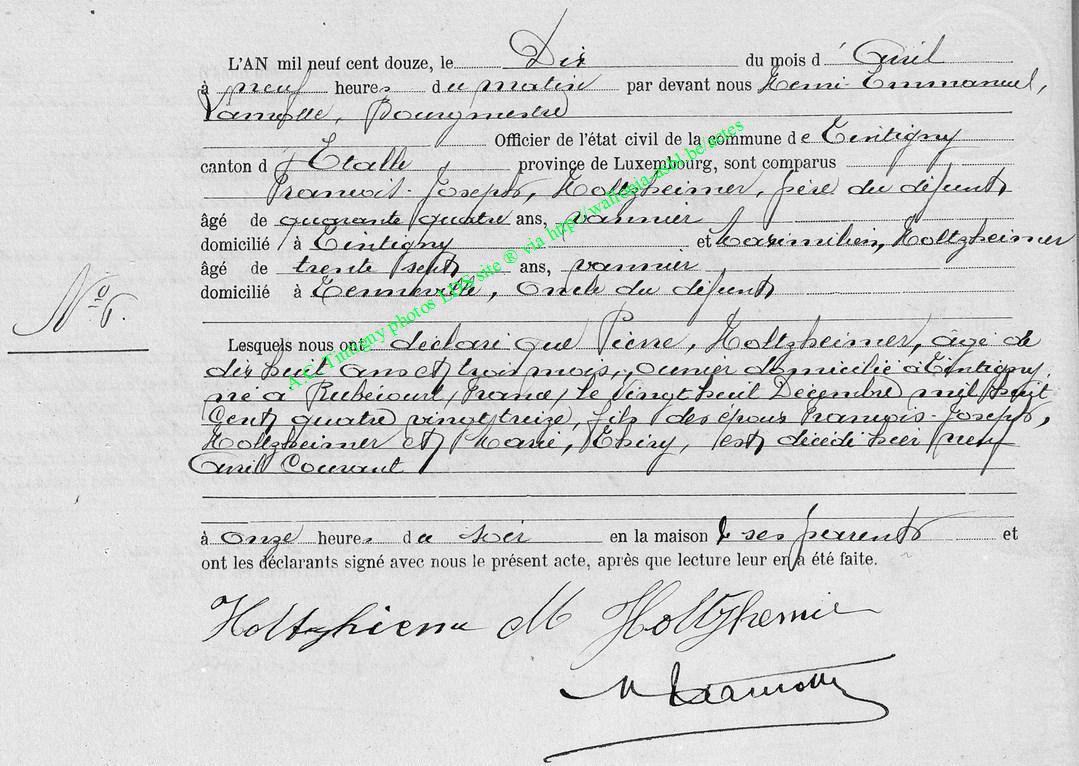 L'AN mil neuf cent douze, le Dix du mois d'Avril
à neuf heures du matin par devant nous Henri-Emmanuel,
Lamotte, Bourgmestre
Officier de l'état civil de la commune de Tintigny
canton d'Etalle province de Luxembourg, sont comparus
François-Joseph, Holtzheimer, père du défunt
âgé de quarante quatre ans, vannier
domicilié à Tintigny et Maximilien, Holtzheimer
âgé de trente sept ans, vannier
domicilié à Tenneville, oncle du défunt
No 6.
Lesquels nous ont déclaré que Pierre, Holtzheimer, âgé de
dix huit ans et trois mois, ouvrier domicilié à Tintigny
né à Rubécourt, France, le vingt huit Décembre mil huit
cent quatre vingt treize, fils des époux François-Joseph,
Holtzheimer et Marie, Thiry, est décédé hier neuf
Avril Courant
à onze heures du soir en la maison de ses parents et
ont les déclarants signé avec nous le présent acte, après que lecture leur en a été faite.
M
Lamotte
A.C. Tintigny photos LDS site ® via http://walfrenia-asbl.be/actes